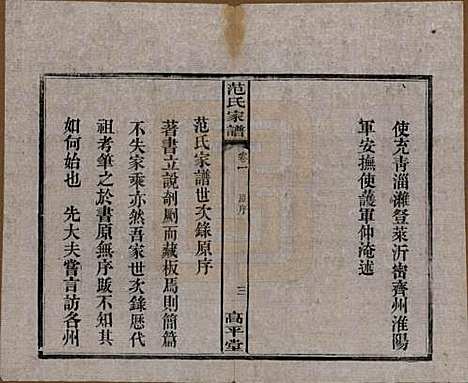 使充青淄濰登萊沂密齊州淮陽
軍安撫使護軍仲淹述
范氏家譜
卷一
原序
三
高平堂
范氏家譜世次錄原序
著書立說剞劂而藏板焉則簡篇
不失家乘亦然吾家世次錄歷代
祖考筆之於書原無序跋不知其
如何始也 先大夫嘗言訪各州